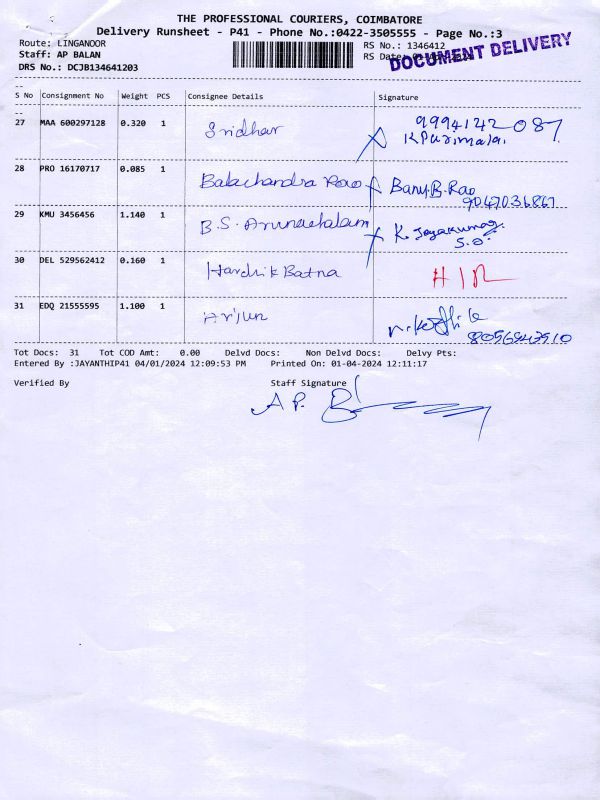 THE PROFESSIONAL COURIERS, COIMBATORE
Delivery Runsheet - P41 - Phone No.:0422-3505555 - Page No.:3
Route: LINGANOOR
Staff: AP BALAN
DRS No.: DCJB134641203
RS No.: 1346412
RS Date:
DOCUMENT DELIVERY
S No Consignment No Weight PCS Consignee Details Signature
27 MAA 600297128 0.320 1 Sridhar 9994142087
K Parimalai
28 PRO 16170717 0.085 1 Balachandra Rao Banu.B.Rao
9047036867
29 KMU 3456456 1.140 1 B.S. Arunachalam K. Jayakumar
S.O
30 DEL 529562412 0.160 1 Hardhik Batna
31 EDQ 21555595 1.100 1 Arjun
8056943910
Tot Docs: 31 Tot COD Amt: 0.00 Delvd Docs: Non Delvd Docs: Delvy Pts:
Entered By :JAYANTHIP41 04/01/2024 12:09:53 PM Printed On: 01-04-2024 12:11:17
Verified By Staff Signature
A P. B